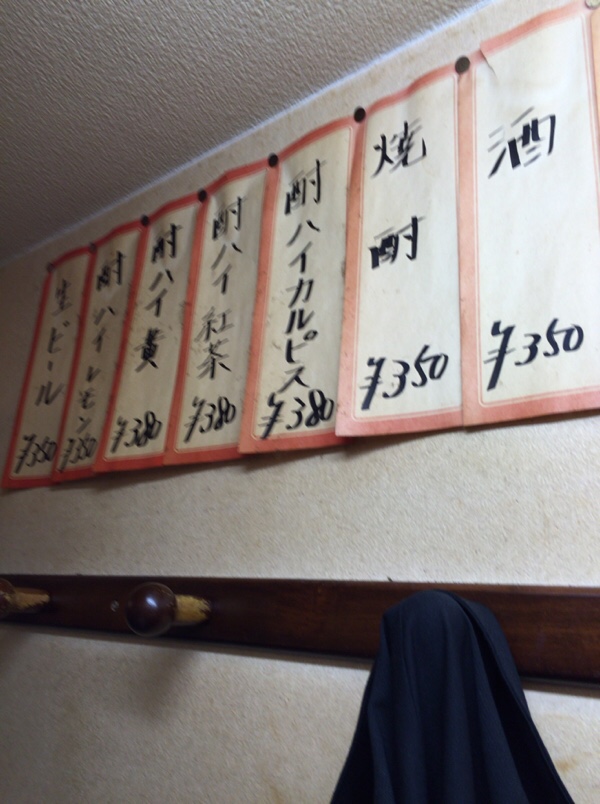 酒 ¥350
焼酎 ¥350
酎ハイカルピス ¥380
酎ハイ紅茶 ¥380
酎ハイ黄 ¥380
酎ハイレモン ¥350
生ビール ¥350